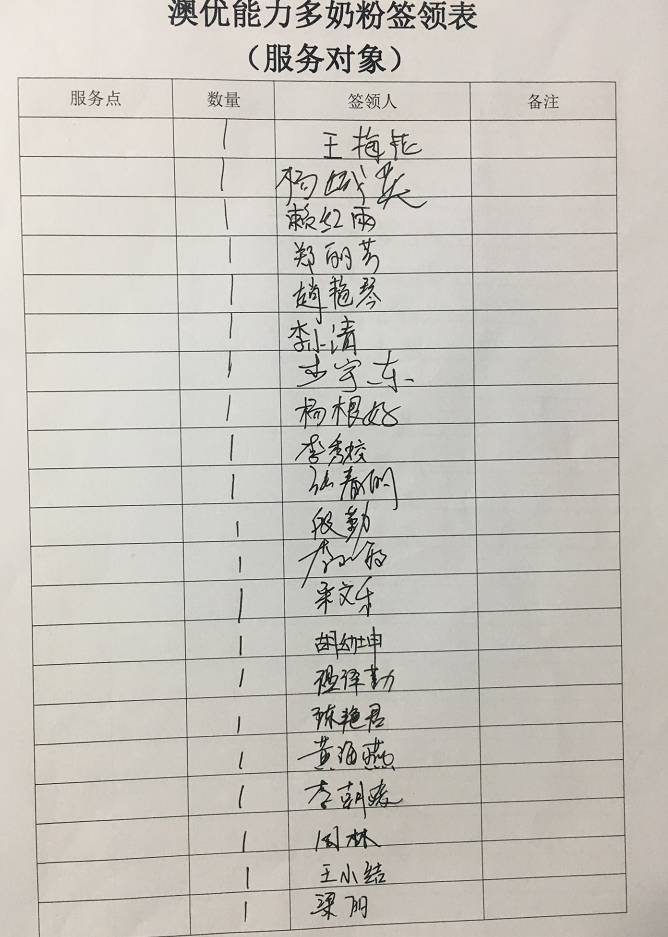 澳优能力多奶粉签领表
（服务对象）
服务点 数量 签领人 备注
1 王梅
1 杨 英
1 赖红雨
1 郑丽芳
1 赵艳琴
1 李小清
1 宇东
1 杨根好
1 李秀姣
1 张春明
1 段勤
1 李
1 文
1 胡幼坤
1 勤
1 陈艳君
1 黄海燕
1 李朝
1 周林
1 王小结
1 梁丽